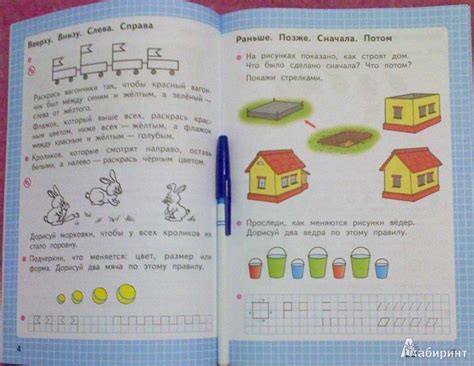 Вверху. Внизу. Слева. Справа
Раскрась вагончики так, чтобы красный вагон-
чик был между синим и жёлтым, а зелёный —
слева от жёлтого.
Флажок, который выше всех, раскрась крас-
ным цветом, ниже всех — жёлтым, а флажок
между красным и жёлтым — голубым.
Кроликов, которые смотрят направо, оставь
белыми, а налево — раскрась чёрным цветом.
Дорисуй морковки, чтобы у всех кроликов их
стало поровну.
Подчеркни, что меняется: цвет, размер или
форма. Дорисуй два мяча по этому правилу.
4
Раньше. Позже. Сначала. Потом
На рисунках показано, как строят дом.
Что было сделано сначала? Что потом?
Покажи стрелками.
Проследи, как меняются рисунки вёдер.
Дорисуй два ведра по этому правилу.
Лабиринт